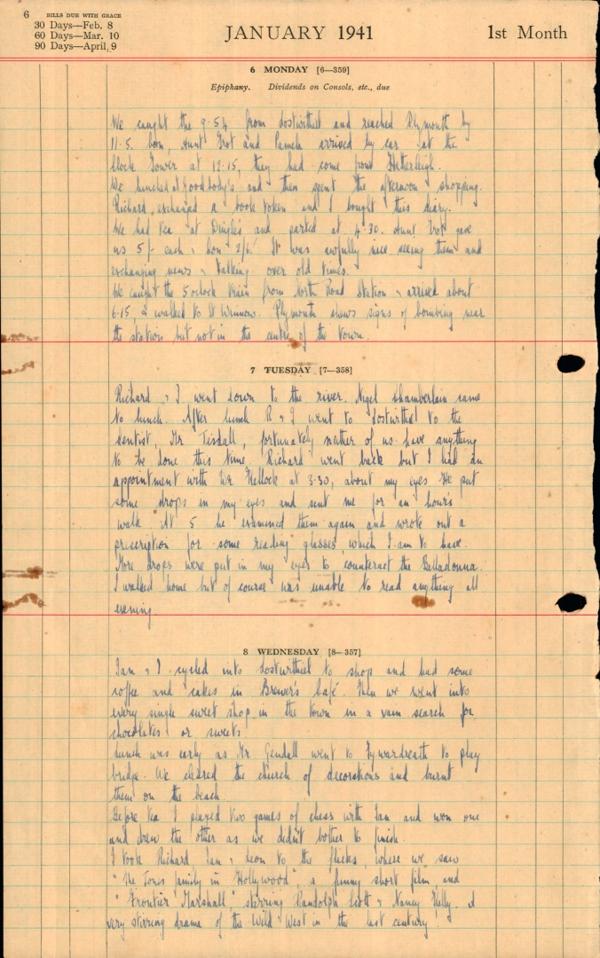 6 BILLS DUE WITH GRACE
30 Days—Feb. 8
60 Days—Mar. 10
90 Days—April, 9
JANUARY 1941
1st Month
6 MONDAY [6—359]
Epiphany. Dividends on Consols, etc., due
We caught the 9.54 from Lostwithiel and reached Plymouth by
11.5. Leon, Aunt Trot and Pamela arrived by car at the
Clock Tower at 12.15, they had come from Hatherleigh.
We lunched at Goodbody's and then spent the afternoon shopping.
Richard exchanged a book token and I bought this diary.
We had tea at Dingle's and parted at 4.30. Aunt Trot gave
us 5/- each, Leon 2/6. It was awfully nice seeing them and
exchanging news & talking over old times.
We caught the 5 oclock train from North Road Station & arrived about
6.15, & walked to St Winnow. Plymouth shows signs of bombing near
the station but not in the centre of the town.
7 TUESDAY [7—358]
Richard & I went down to the river. Nigel Chamberlain came
to lunch. After lunch R & I went to Lostwithiel to the
dentist, Mr Tisdall, fortunately neither of us have anything
to be done this time. Richard went back but I had an
appointment with at 3.30, about my eyes. He put
some drops in my eyes and sent me for an hour's
walk. At 5 he examined them again and wrote out a
prescription for some reading glasses which I am to have.
More drops were put in my eyes to counteract the Belladonna.
I walked home but of course was unable to read anything all
evening.
8 WEDNESDAY [8—357]
Ian & I cycled into Lostwithiel to shop and had some
coffee and cakes in Brewer's Café. Then we went into
every single sweet shop in the town in a vain search for
chocolates or sweets.
Lunch was early as Mr Gendall went to Tywardreath to play
bridge. We cleared the church of decorations and burnt
them on the beach.
Before tea I played two games of chess with Ian and won one
and drew the other as we didn't bother to finish.
I took Richard, Ian & Leon to the flicks, where we saw
"The Jones family in Hollywood", a funny short film and
"Frontier Marshall," starring Randolph Scott & Nancy Kelly. A
very stirring drama of the Wild West in the last century.